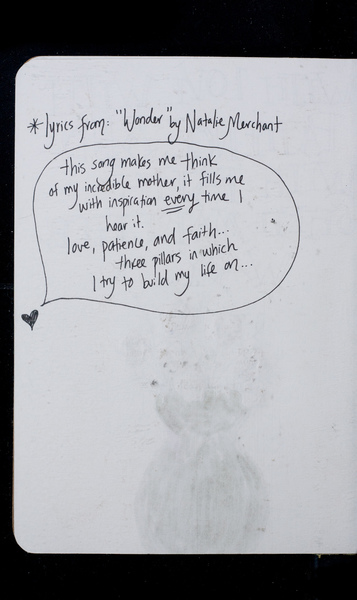 * lyrics from: "Wonder" by Natalie Merchant
this song makes me think
of my incredible mother, it fills me
with inspiration every time I
hear it.
love, patience, and faith...
three pillars in which
I try to build my life on...